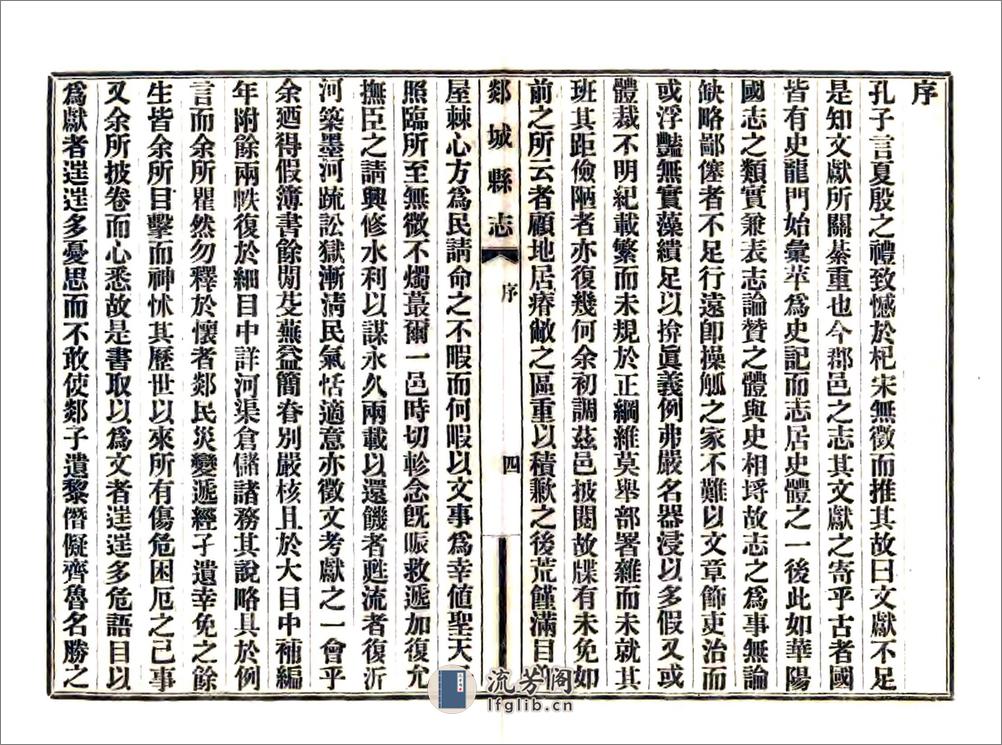 序
孔子言夏殷之禮致憾於杞宋無徵而推其故曰文獻不足
是知文獻所關綦重也今郡邑之志其文獻之寄乎古者國
皆有史龍門始彙萃為史記而志居史體之一後此如華陽
國志之類實兼表志論贊之體與史相埒故志之為事無論
缺略鄙僿者不足行遠卽操觚之家不難以文章飾吏治而
或浮豔無實藻繢足以揜眞義例弗嚴名器浸以多假又或
體裁不明紀載繁而未規於正綱維莫舉部署雜而未就其
班其距儉陋者亦復幾何余初調茲邑披閱故牒有未免如
前之所云者顧地居瘠敝之區重以積歉之後荒饉滿目
郯城縣志
序
四
屋棘心方為民請命之不暇而何暇以文事為幸値聖天子
照臨所至無微不燭蕞爾一邑時切軫念旣賑救遞加復允
撫臣之請興修水利以謀永久兩載以還饑者甦流者復沂
河築墨河疏訟獄漸淸民氣恬適意亦徵文考獻之一會乎
余迺得假簿書餘閒芟蕪益簡眘別嚴核且於大目中補編
年附餘兩帙復於細目中詳河渠倉儲諸務其說略具於例
言而余所瞿然勿釋於懷者郯民災變遞經孑遺幸免之餘
生皆余所目擊而神怵其歷世以來所有傷危困厄之已事
又余所披卷而心悉故是書取以為文者逞逞多危語目以
為獻者逞逞多憂思而不敢使郯子遺黎僭儗齊魯名勝之
流芳阁
lfglib.cn